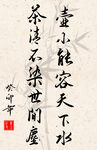 壺小能容天下水
茶清不染世間塵
癸卯年